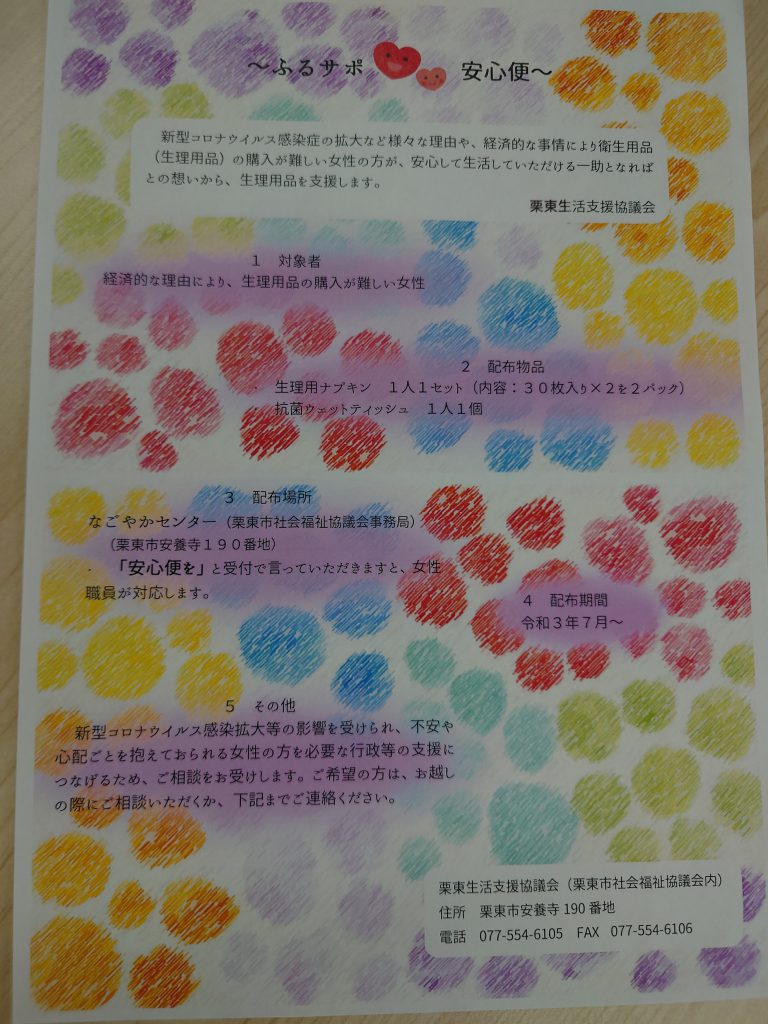 ～ふるサポ 安心便～
新型コロナウイルス感染症の拡大など様々な理由や、経済的な事情により衛生用品
（生理用品）の購入が難しい女性の方が、安心して生活していただける一助となれば
との想いから、生理用品を支援します。
栗東生活支援協議会
１　対象者
経済的な理由により、生理用品の購入が難しい女性
２　配布物品
・　生理用ナプキン　１人１セット（内容：３０枚入り×２を２パック）
抗菌ウェットティッシュ　１人１個
３　配布場所
なごやかセンター（栗東市社会福祉協議会事務局）
（栗東市安養寺１９０番地）
・　「安心便を」と受付で言っていただきますと、女性
職員が対応します。
４　配布期間
令和３年７月～
５　その他
新型コロナウイルス感染拡大等の影響を受けられ、不安や
心配ごとを抱えておられる女性の方を必要な行政等の支援に
つなげるため、ご相談をお受けします。ご希望の方は、お越し
の際にご相談いただくか、下記までご連絡ください。
栗東生活支援協議会（栗東市社会福祉協議会内）
住所　栗東市安養寺 190 番地
電話　077-554-6105　FAX　077-554-6106